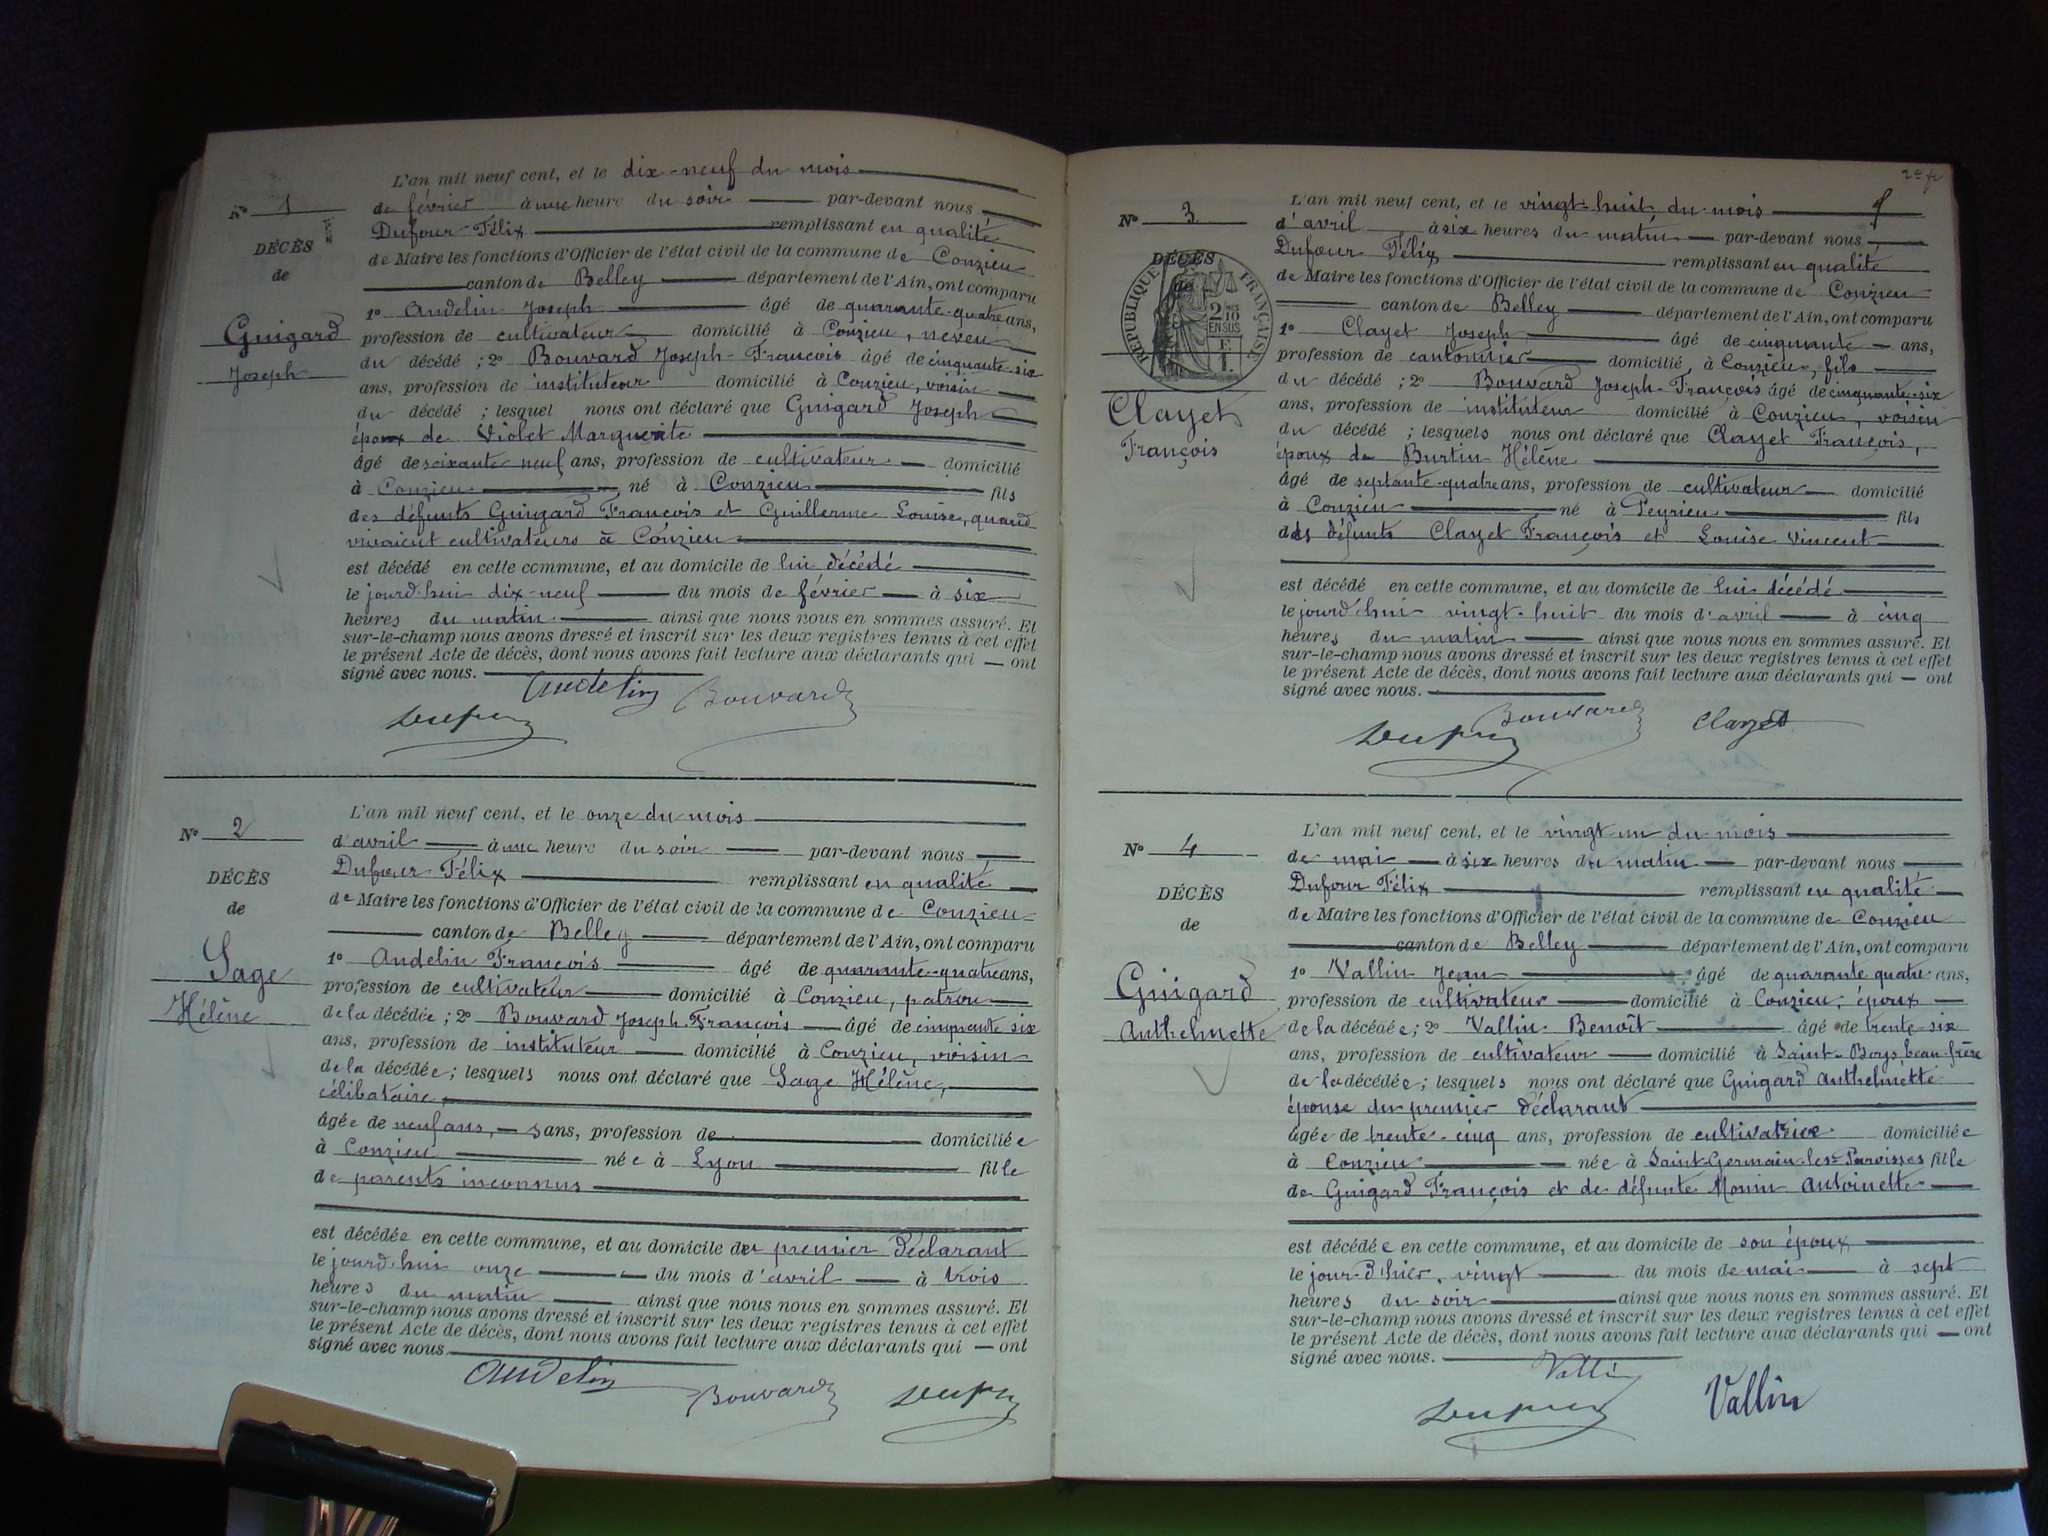 L'an mil neuf cent, et le dix-neuf du mois
N° 1
de février à une heure du soir par-devant nous
DÉCÈS
Dufour Félix remplissant en qualité
de
de Maire les fonctions d'Officier de l'état civil de la commune de Conzieu
canton de Belley département de l'Ain, ont comparu
1° Andelin Joseph âgé de quarante-quatre ans,
Guigard
profession de cultivateur domicilié à Conzieu, neveu
Joseph
du décédé ; 2° Bouvard Joseph-François âgé de cinquante-six
ans, profession de instituteur domicilié à Conzieu, voisin
du décédé ; lesquel nous ont déclaré que Guigard Joseph
époux de Violet Marguerite
âgé de soixante neuf ans, profession de cultivateur domicilié
à Conzieu né à Conzieu fils
des défunts Guigard François et Guillerme Louise, quand
vivaient cultivateurs à Conzieu
est décédé en cette commune, et au domicile de lui décédé
le jourd'hui dix-neuf du mois de février à six
heures du matin ainsi que nous nous en sommes assuré. Et
sur-le-champ nous avons dressé et inscrit sur les deux registres tenus à cet effet
le présent Acte de décès, dont nous avons fait lecture aux déclarants qui ont
signé avec nous.
Andelin Bouvard
Dufour
L'an mil neuf cent, et le onze du mois
N° 2
d'avril à une heure du soir par-devant nous
DÉCÈS
Dufour Félix remplissant en qualité
de
de Maire les fonctions d'Officier de l'état civil de la commune de Conzieu
canton de Belley département de l'Ain, ont comparu
Sage
1° Andelin François âgé de quarante-quatre ans,
profession de cultivateur domicilié à Conzieu, patron
Hélène
de la décédée ; 2° Bouvard Joseph-François âgé de cinquante six
ans, profession de instituteur domicilié à Conzieu, voisin
de la décédée ; lesquels nous ont déclaré que Sage Hélène,
célibataire,
âgée de neuf ans, sans, profession de domiciliée
à Conzieu née à Lyon fille
de parents inconnus
est décédée en cette commune, et au domicile du premier déclarant
le jourd'hui onze du mois d'avril à trois
heures du matin ainsi que nous nous en sommes assuré. Et
sur-le-champ nous avons dressé et inscrit sur les deux registres tenus à cet effet
le présent Acte de décès, dont nous avons fait lecture aux déclarants qui ont
signé avec nous.
Andelin Bouvard Dufour
L'an mil neuf cent, et le vingt-huit du mois
N° 3
d'avril à six heures du matin par-devant nous
DÉCÈS
Dufour Félix remplissant en qualité
de
RÉPUBLIQUE FRANÇAISE
2/10 EN SUS
de Maire les fonctions d'Officier de l'état civil de la commune de Conzieu
canton de Belley département de l'Ain, ont comparu
1° Clayet Joseph âgé de cinquante ans,
profession de cantonnier domicilié à Conzieu, fils
du décédé ; 2° Bouvard Joseph-François âgé de cinquante-six
Clayet
ans, profession de instituteur domicilié à Conzieu, voisin
François
du décédé ; lesquels nous ont déclaré que Clayet François,
époux de Burtin Hélène
âgé de septante-quatre ans, profession de cultivateur domicilié
à Conzieu né à Peyrieu fils
des défunts Clayet François et Louise Vincent
est décédé en cette commune, et au domicile de lui décédé
le jourd'hui vingt-huit du mois d'avril à cinq
heures du matin ainsi que nous nous en sommes assuré. Et
sur-le-champ nous avons dressé et inscrit sur les deux registres tenus à cet effet
le présent Acte de décès, dont nous avons fait lecture aux déclarants qui ont
signé avec nous.
Dufour Bouvard Clayet
L'an mil neuf cent, et le vingt-un du mois
N° 4
de mai à six heures du matin par-devant nous
DÉCÈS
Dufour Félix remplissant en qualité
de
de Maire les fonctions d'Officier de l'état civil de la commune de Conzieu
canton de Belley département de l'Ain, ont comparu
Guigard
1° Vallin Jean âgé de quarante quatre ans,
profession de cultivateur domicilié à Conzieu, époux
Anthelmette
de la décédée ; 2° Vallin Benoît âgé de trente six
ans, profession de cultivateur domicilié à Saint-Bois, beau-frère
de la décédée ; lesquels nous ont déclaré que Guigard Anthelmette
épouse du premier déclarant
âgée de trente-cinq ans, profession de cultivatrice domiciliée
à Conzieu née à Saint-Germain-les-Paroisses fille
de Guigard François et de défunte Monin Antoinette
est décédée en cette commune, et au domicile de son époux
le jour d'hier, vingt du mois de mai à sept
heures du soir ainsi que nous nous en sommes assuré. Et
sur-le-champ nous avons dressé et inscrit sur les deux registres tenus à cet effet
le présent Acte de décès, dont nous avons fait lecture aux déclarants qui ont
signé avec nous.
Vallin
Dufour Vallin